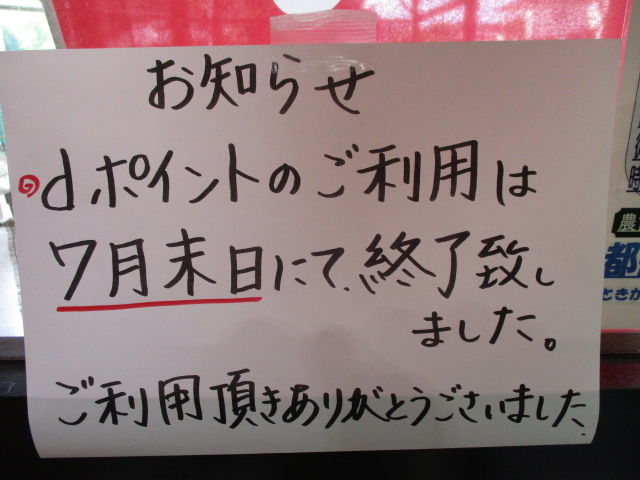 お知らせ
dポイントのご利用は
7月末日にて、終了致し
ました。
ご利用頂きありがとうございました.
農
都
ときか